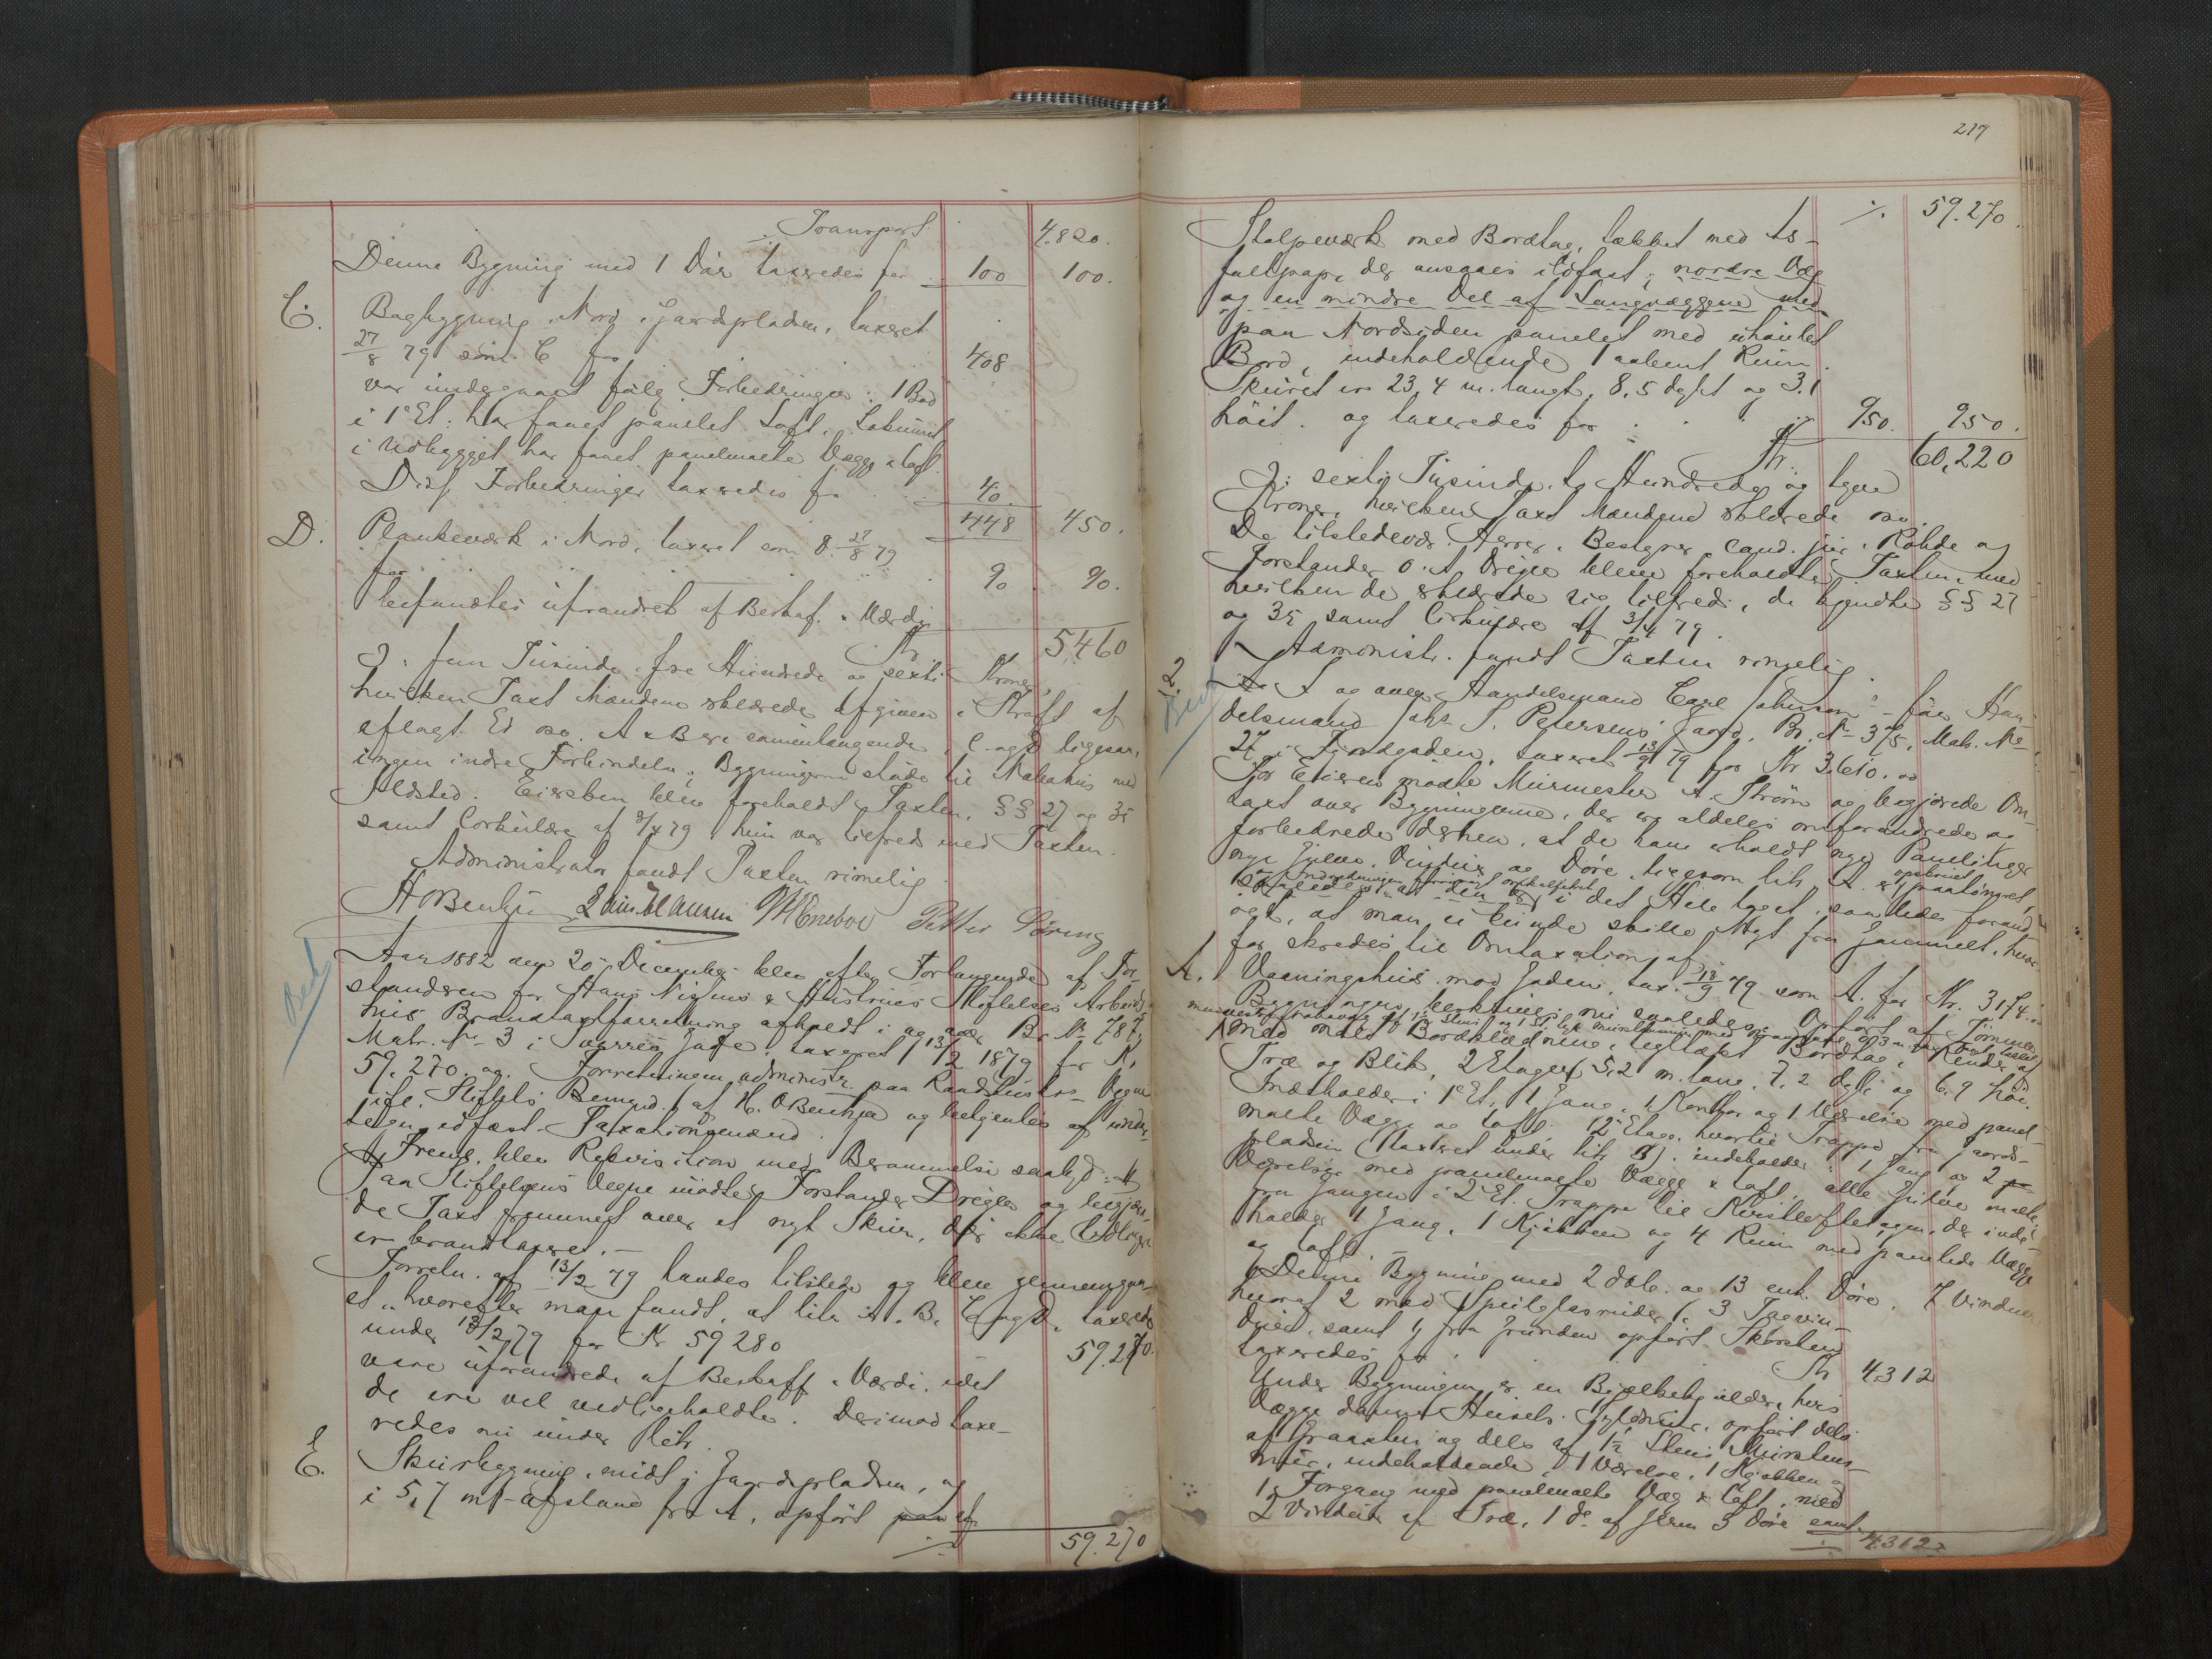 Transport 4.820.
Denne Bygning med 1 Dør taxeredes for 100 100.
C. Bagbygning, Nord i Gaardspladsen, taxeret
27/8 79 som C for 408
var undergaaet følg. Forbedringer: 1 Bod
i 1e Et: har faaet panelet Loft. Lokummet
i Udbygget har faaet panelmalte Vægge & Loft.
Diss. Forbedringer taxeredes for 40.
448 450.
D. Plankeværk i Nord, taxeret som D. 27/8 79
for 90 90.
befandtes uforandret af Beskaf. & Værdi
Kr. 5460
J: fem Tusinde fire Hundrede og sexti Kroner,
hvilken Taxt Mændene erklærede afgiven i Kraft af
aflagt Ed osv. A & B ere sammenhængende, C og D ligesaa,
ingen indre Forbindelse. Bygningerne støde til Nabohus med
Ildsted. Eiersken blev foreholdt Taxten, §§ 27 og 35
samt Cirkulære af 3/4 79, hun var tilfreds med Taxten.
Administrator fandt Taxten rimelig
Petter Löring
Aar 1882 den 20de December blev efter Forlangende af For-
standeren for Hans Nissens & Hustrues Stiftelses Arbeids-
hus Brandtaxtforretning afholdt i og over Br. No 787,
Matr. No 3 i Sverres Gade, taxeret 13/2 1879 for Kr.
59.270. oo. Forretningen administr. paa Raadstuens Vegne
ifl. Stiftets Bemynd. af H. O Benkja og betjentes af under-
tegn. edfæst. Taxationsmænd.
Freml. blev Rekvisition med Berammelse saalyd:
Paa Stiftelsens Vegne mødte Forstander Dreyer og begjære-
de Taxt fremmet over et nyt Skur, der ikke tidligere
er brandtaxeret.
Forretn. af 13/2 79 havdes tilstede og blev gjennemgaa-
et, hvorefter man fandt, at litr A. B. C og D, taxerede
under 13/2 79 for Kr 59280 59.270.
vare uforandrede af Beskaff. & Værdi, idet
de ere vel vedligeholdte. Derimod taxe-
redes nu under Litr.
E. Skurbygning, midt i Gaardspladsen, og
i 5,7 mt afstand fra A, opført af
59.270
217
Stolpeværk med Bordtag, tækket med As- ./. 59.270.
faltpap, der ansaaes ildfast; nordre Væg
og en mindre Del af Langvæggene med
paa Nordsiden panelet med uhøvlet
Bord, indeholdende 1 aabent Rum.
Skuret er 23,4 m. langt, 8,5 dybt og 3.1
høit. og taxeredes for 950. 950.
Kr. 60,220
J: sexti Tusinde, to Hundrede og tyve
Kroner, hvilken Taxt Mændene erklærede osv.
De tilstedevær. Herrer, Bestyrer cand. jur. Rohde og
Forstander O. A. Dreyer bleve foreholdte Taxten, med
hvilken de erklærede sig tilfreds, de kjendte §§ 27
og 35 samt Cirkulære af 3/4 79.
Administr. fandt Taxten rimelig.
2. I og over Handelsmand Carl Johnsen - før Han-
delsmand Johs S. Petersens Gaard, Br. No 375, Matr. No
27 i Fjordgaden, taxeret 13/9 79 for Kr 3.610. oo
For Eieren mødte Muurmester A. Strøm og begjærede Om-
taxt over Bygningerne, der ere aldeles omforandrede og
forbedrede derhen, at de have erholdt nye Panelinger
nye Gulve, Vinduer og Døre, ligesom litr A. er paatømret,
og Indredningen forøvrigt i det Hele taget saaledes forand-
ret, at man ei kunde skille Nyt fra Gammelt, hvor-
for skredes til Omtaxation af
A. Vaaningshus mod Gaden, tax. 13/9 79 som A. for Kr. 3174.
Bygningen beskrives nu saaledes: Opført af Tømmer,
med malet Bordklædning, tegltækt Bordtag, Render af
Træ og Blik, 2 Etager, 5,2 m. lang, 7,2 dyb og 6.9 høi.
Indeholder i 1e Et. 1 Gang, 1 Kontor og 1 Værelse med panel-
malte Vægge og Loft. 2den Etage, hvortil Trappe fra Gaards-
pladsen (taxeret under litr B), indeholder: 1 Gang og 2
Værelser med panelmalte Vægge & Loft, alle Gulve malte.
Fra Gangen i 2 Et. Trappe til Kvistloftetagen, der inde-
holder 1 Gang, 1 Kjøkken og 4 Rum med panelede Vægge
og Loft.
Denne Bygning med 2 dob. og 13 enk. Døre, 7 Vinduer
hvoraf 2 med Speilglasruder, 3 Tagvin-
duer, samt 1 fra Grunden opført Skorsten
taxeredes for Kr 4312
Under Bygningen er en Bjælkekjælder, hvis
Vægge danner Husets Fyldmur, opført dels
af Graasten og dels af 1½ Stens Mursten-
mur, indeholdende 1 Værelse, 1 Kjøkken og
1 Forgang med panelmalte Væg & Loft, med
2 Vinduer af Træ, 1 do af Jern 3 Døre samt
4.312